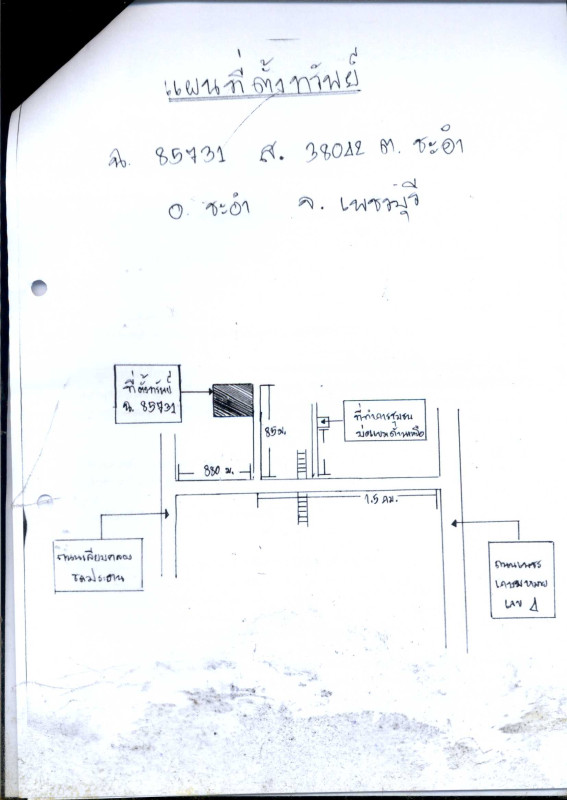 แผนที่ตั้งทรัพย์
ฉ. 85731 ส. 38042 ต. ชะอำ
อ. ชะอำ จ. เพชรบุรี
ที่ตั้งทรัพย์
ฉ. 85731
85 ม.
ที่ทำการชุมชน
880 ม.
1.5 กม.
ถนนเลียบคลอง
ชลประทาน
ถนนเพชร
เกษมหมาย
เลข 4